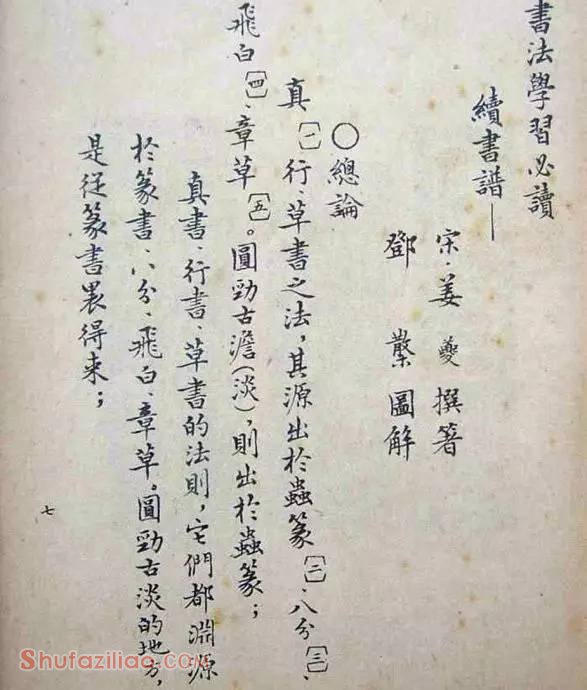 書法學習必讀
續書譜—
宋·姜夔撰著
鄧 圖解
○總論
真〔一〕行、草書之法，其源出於蟲篆〔二〕、八分〔三〕、
飛白〔四〕、章草〔五〕。圓勁古澹(淡)，則出於蟲篆；
真書、行書、草書的法則，它們都淵源
於篆書、八分、飛白、章草。圓勁古淡的地方，
是從篆書裏得來；
七
Shufaziliao.com